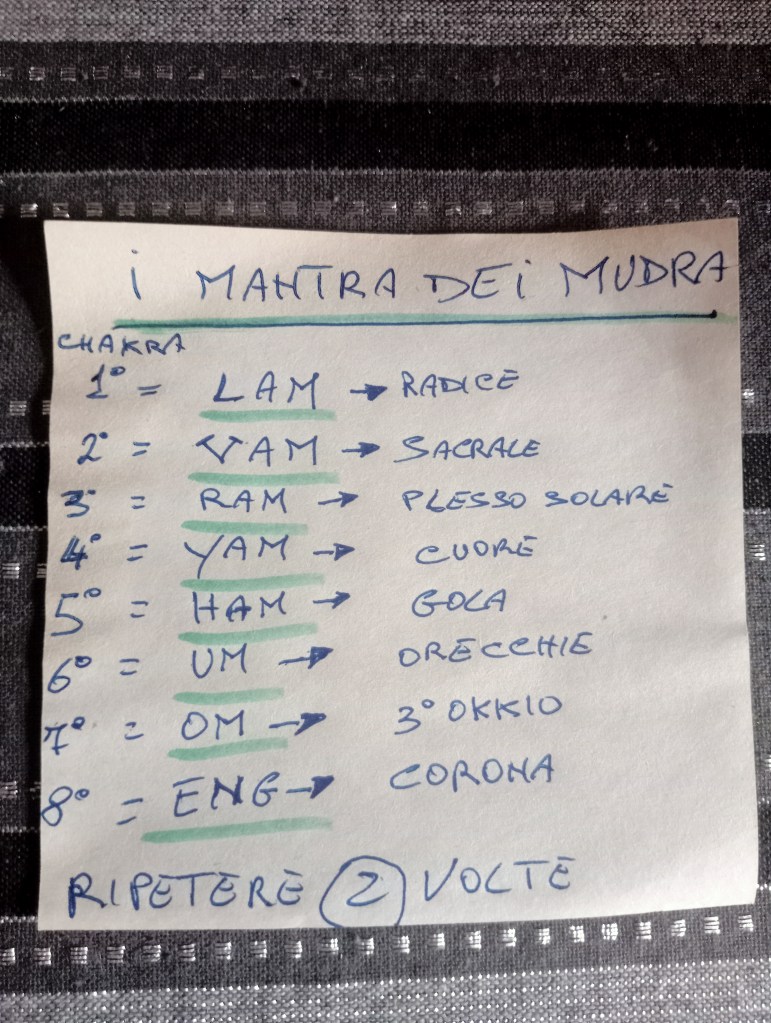 i MANTRA DEi MUDRA
CHAKRA
1° = LAM → RADICE
2° = VAM → SACRALE
3° = RAM → PLESSO SOLARE
4° = YAM → CUORE
5° = HAM → GOLA
6° = UM → ORECCHIE
7° = OM → 3° OKKIO
8° = ENG → CORONA
RIPETERE 2 VOLTE